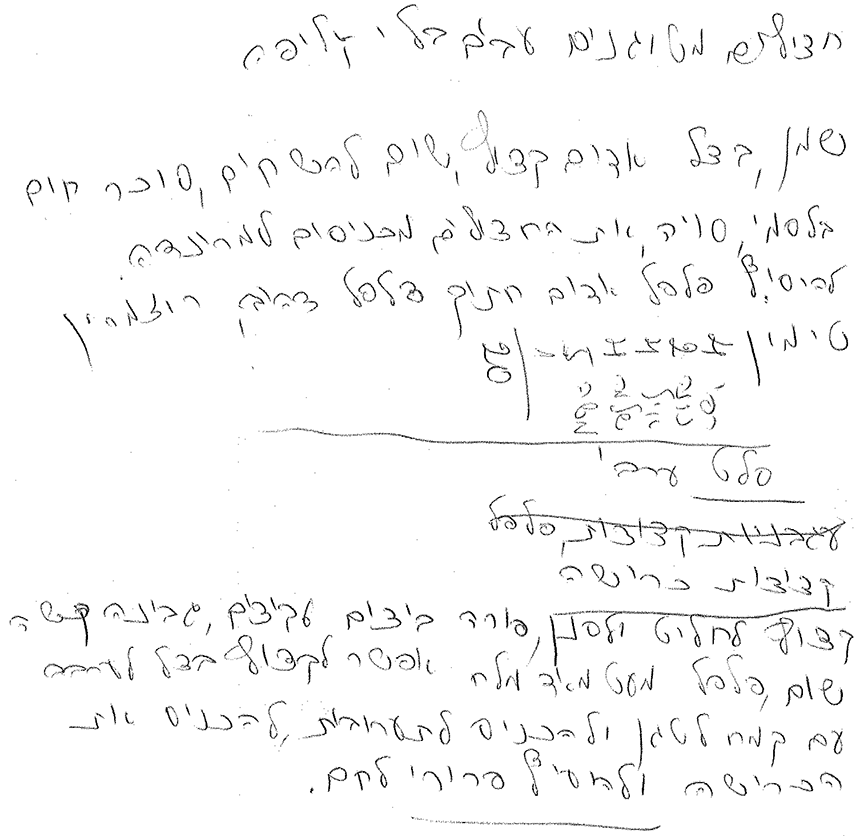 חצילים מטוגנים עבים בלי קליפה
שמן, בצל אדום קצוץ, שום להשחים, סוכר חום
בלסמי, סויה, את החצילים מכניסים למרינדה.
להוסיף פלפל אדום חתוך פלפל צהוב, רוזמרין
טימין
סלט ערבי
עגבניות קצוצות, פלפל
קציצות כרישה
קצוץ לחליט ולסנן, פורה ביצים עקיצים, גבינה קשה
שום, פלפל מעט מאד מלח אפשר לקצוץ בצל לערבב
עם קמח לטגן ולהכניס לתערובת, להכניס את
הכרישה ולהוסיף פרורי לחם.